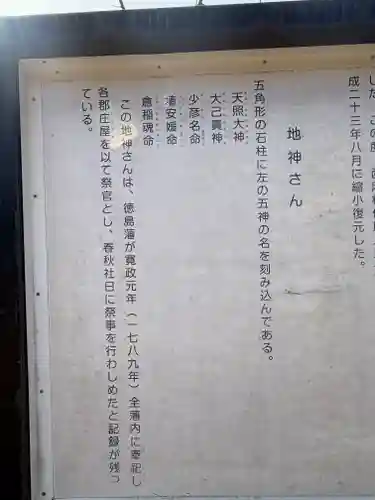 した。この度、
成二十三年八月に縮小復元した。
地神さん
五角形の石柱に左の五神の名を刻み込んである。
天照大神
大己貴神
少彦名命
埴安媛命
倉稲魂命
この地神さんは、徳島藩が寛政元年（一七八九年）全藩内に奉祀し
各郡庄屋を以て祭官とし、春秋社日に祭事を行わしめたと記録が残っ
ている。